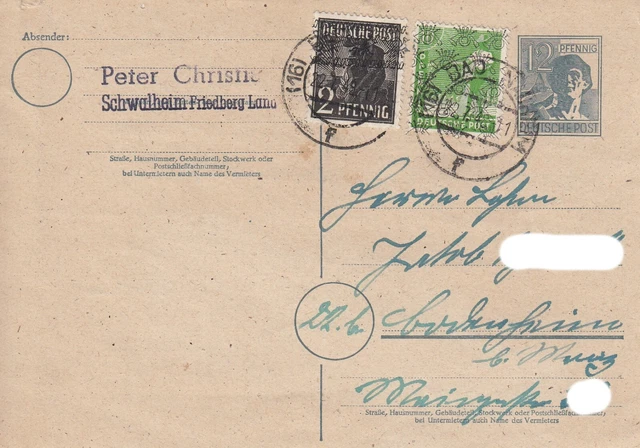 Absender:
Peter Christ
Schwalheim Friedberg Land
Straße, Hausnummer, Gebäudeteil, Stockwerk oder
Postschließfachnummer;
bei Untermietern auch Name des Vermieters
DEUTSCHE POST
2 PFENNIG
DEUTSCHE POST
12 PFENNIG
DEUTSCHE POST
(16) BAD NAUHEIM
f
(16) BAD NAUHEIM
f
Herrn
Jakob
22. b.
Bodenheim
b. Mainz
Mainzerstr
Straße, Hausnummer, Gebäudeteil, Stockwerk oder Postschließfachnummer;
bei Untermietern auch Name des Vermieters